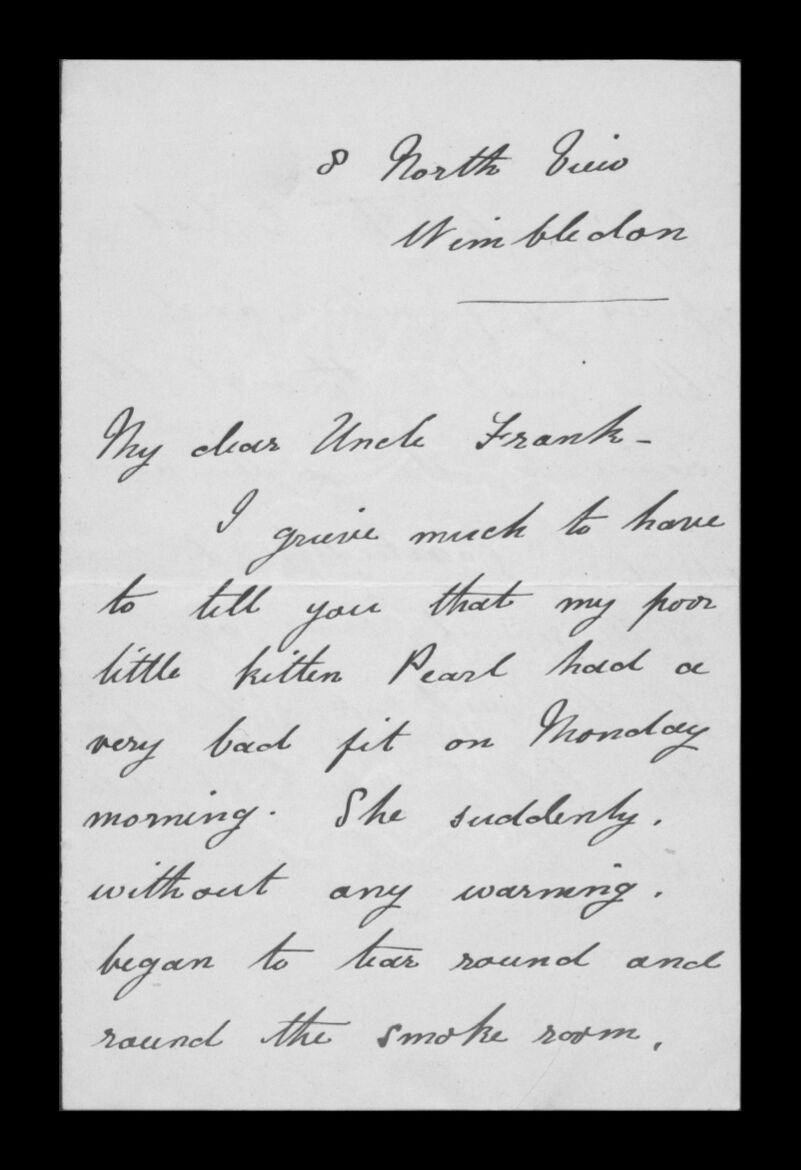 8 North View
Wimbledon
My dear Uncle Frank -
I grieve much to have
to tell you that my poor
little kitten Pearl had a
very bad fit on Monday
morning. She suddenly,
without any warning,
began to tear round and
round the smoke room,